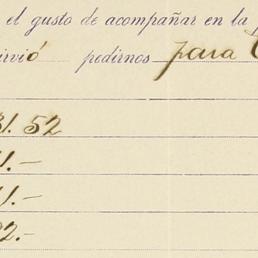 el gusto de acompañar en la
irvió pedirnos para
81. 52
1.-
1.-
2.-